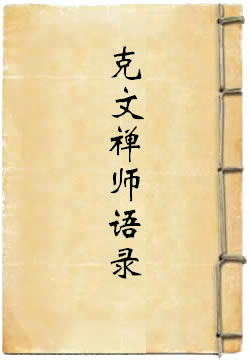 克文禅师语录